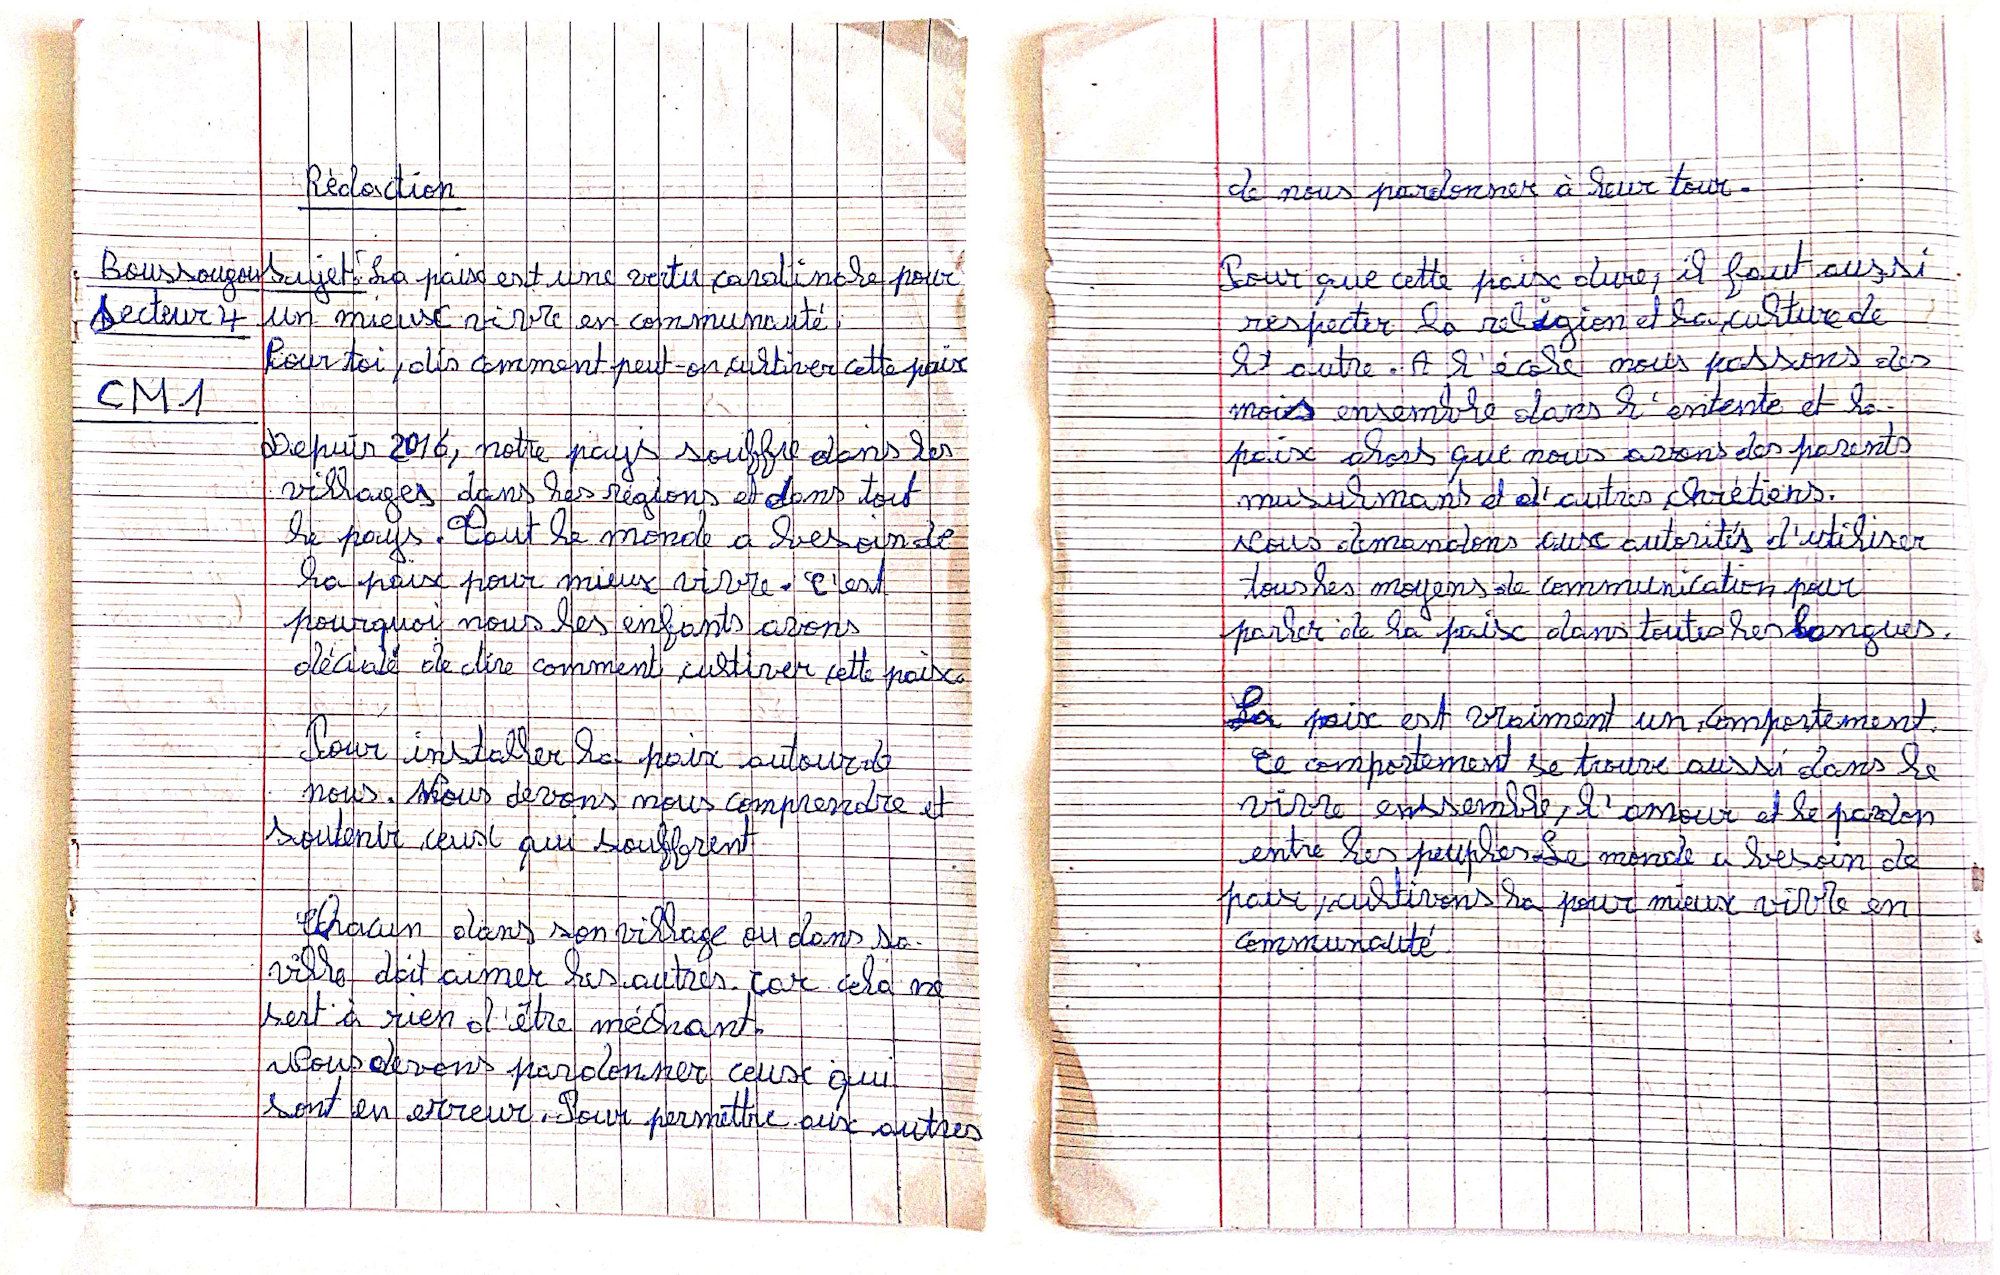 Rédaction
Boussougou Sujet: La paix est une vertu cardinale pour
Secteur 4 un mieux vivre en communauté.
Pour toi, dis comment peut-on cultiver cette paix
CM1
Depuis 2016, notre pays souffre dans les
villages dans les régions et dans tout
le pays. Tout le monde a besoin de
la paix pour mieux vivre. C'est
pourquoi nous les enfants avons
décidé de dire comment cultiver cette paix.
Pour installer la paix autour de
nous. Nous devons nous comprendre et
soutenir ceux qui souffrent
Chacun dans son village ou dans sa
ville doit aimer les autres. Car cela ne
sert à rien d'être méchant.
Nous devons pardonner ceux qui
sont en erreur. Pour permettre aux autres
de nous pardonner à leur tour.
Pour que cette paix dure, il faut aussi
respecter la religion et la culture de
l'autre. A l'école nous passons des
mois ensemble dans l'entente et la
paix alors que nous avons des parents
musulmans et d'autres chrétiens.
Nous demandons aux autorités d'utiliser
tous les moyens de communication pour
parler de la paix dans toutes les langues.
La paix est vraiment un comportement.
Ce comportement se trouve aussi dans le
vivre enssemble, l'amour et le pardon
entre les peuples. Le monde a besoin de
paix, cultivons la pour mieux vivre en
communauté